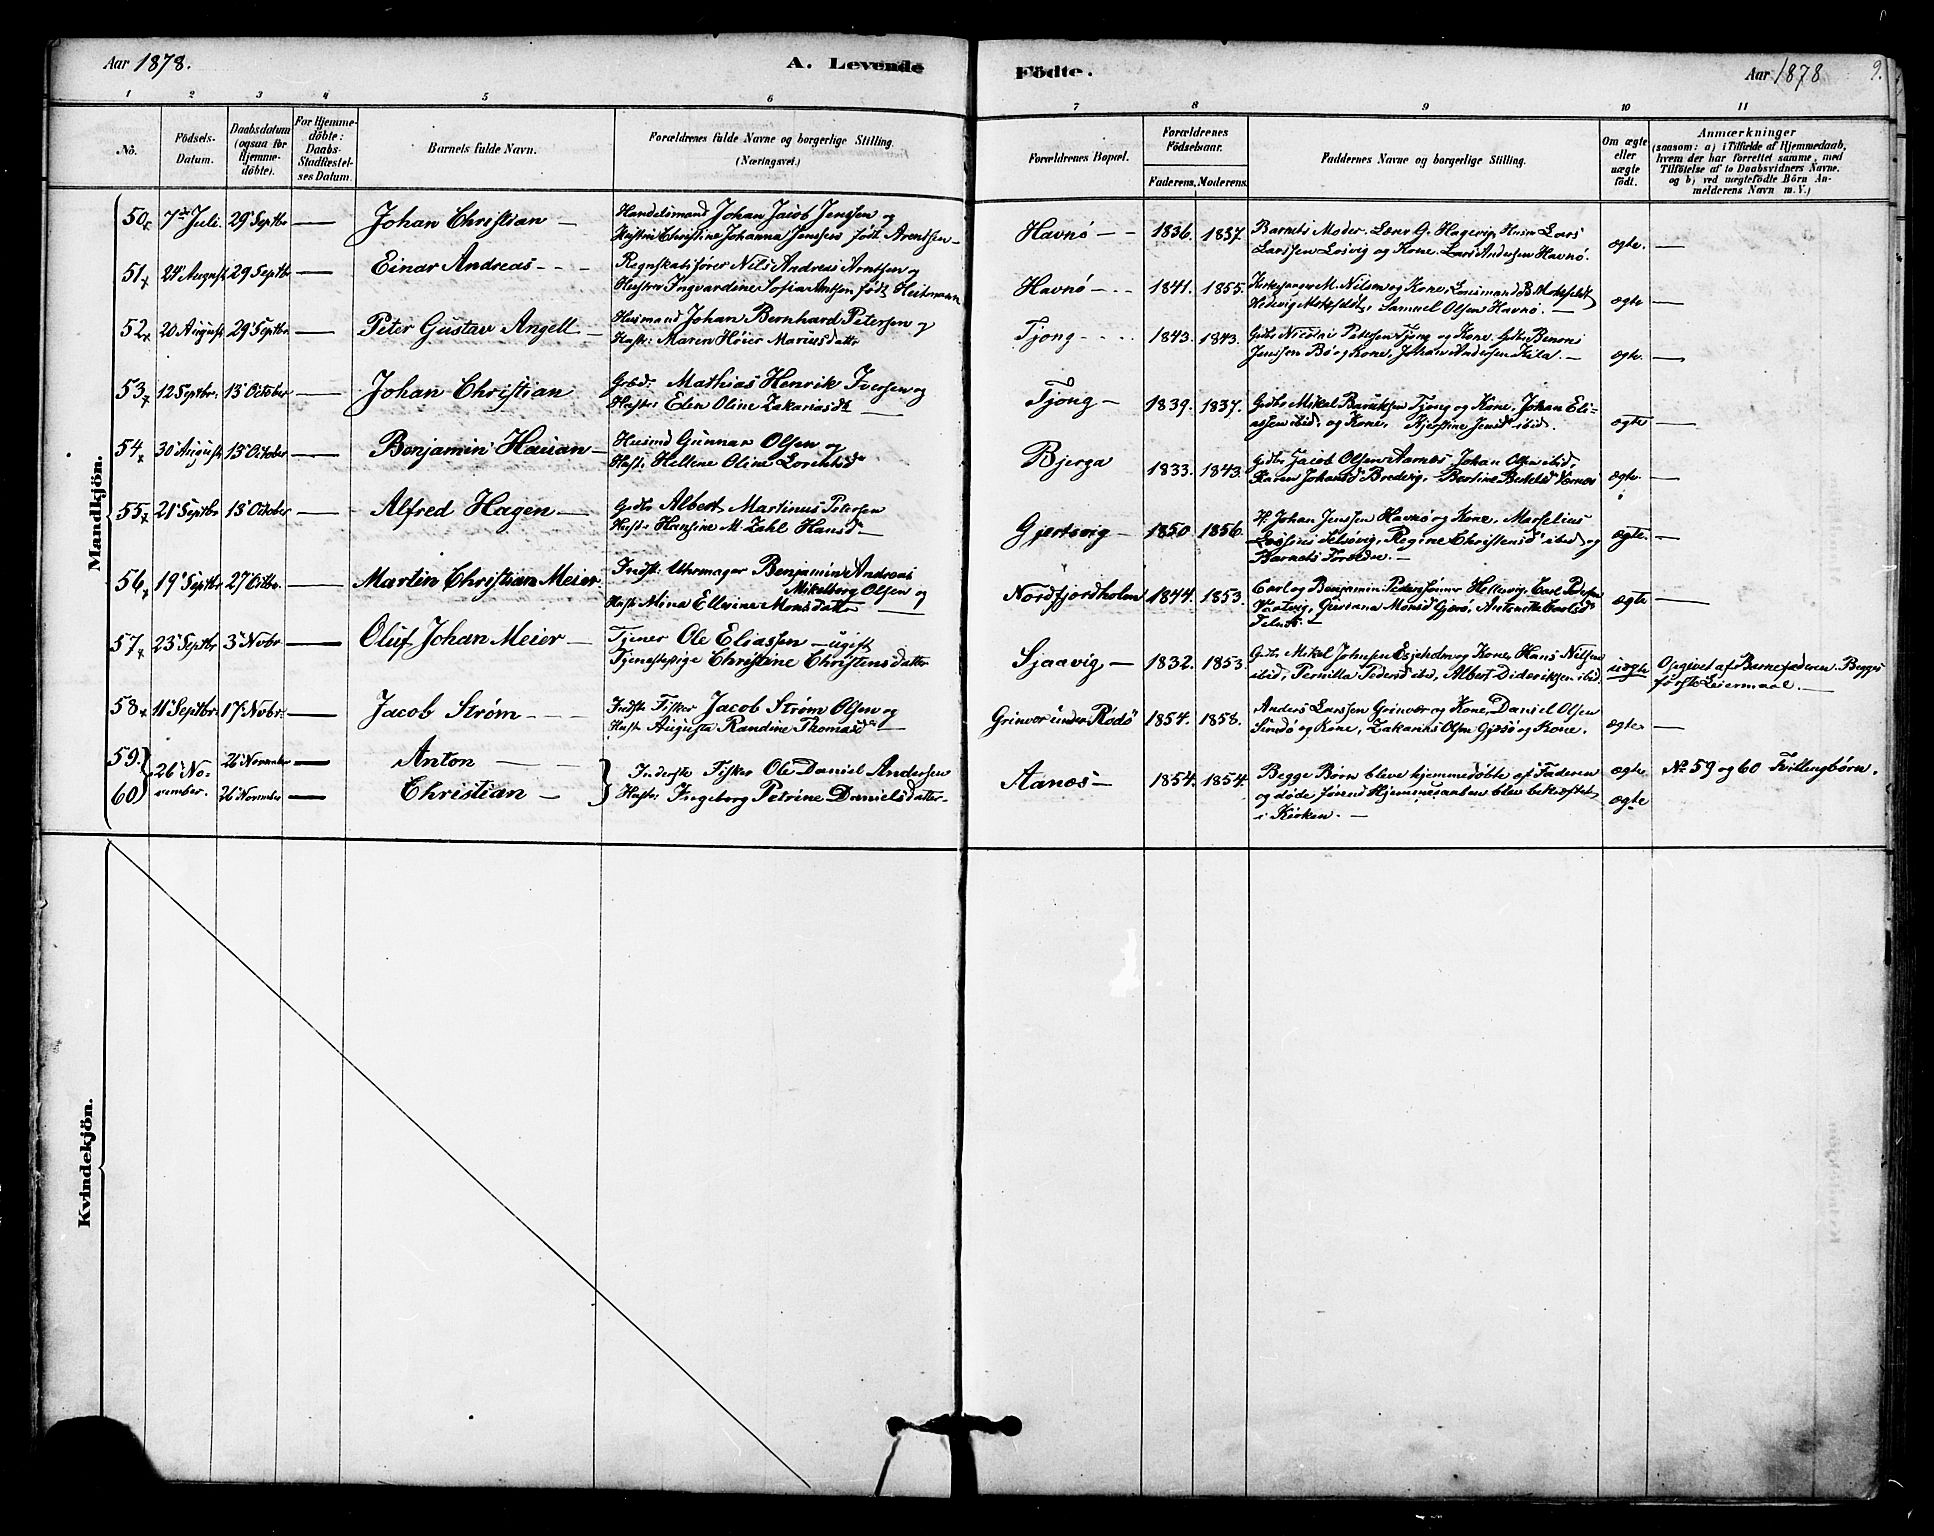 Aar 1878.
A. Levende
Födte.
Aar 1878
9.
1 2 3 4 5 6 7 8 9 10 11
No.
Födsels-
Datum.
Daabsdatum
(ogsaa for
Hjemme-
döbte).
For Hjemme-
döbte:
Daabs-
Stadfæstel-
ses Datum.
Barnets fulde Navn.
Forældrenes fulde Navne og borgerlige Stilling.
(Næringsvei.)
Forældrenes Bopæl.
Forældrenes
Födselsaar.
Faderens. Moderens.
Faddernes Navne og borgerlige Stilling.
Om ægte
eller
uægte
födt.
Anmærkninger
(saasom: a) i Tilfælde af Hjemmedaab,
hvem der har forrettet samme, med
Tilföielse af to Daabsvidners Navne.
og b) ved uægtefödte Börn An-
melderens Navn m. V.)
Mandkjön.
50 7de Juli. 29 Septbr — Johan Christian —
Handelsmand Johan Jacob Jenssen og
Hustru Christine Johanna Jenssen født Arentsen —
Havnø — 1836. 1837.
Barnets Moder. Lars
Larssen Losvig og Kone. Lars Andersen Havnø.
ægte. —
51 24 August 29 Septbr — Einar Andreas —
Regnskabsfører Nils Andreas Arntsen og
Hustru Ingvardine Sofia Arntsen født Heitmann
Havnø — 1841. 1855.
Kirkesanger M. Nilsen og Kone, Lensmand B. Moksfeldt
Hedvig Moksfeldt, Samuel Olsen Havnø. —
ægte —
52 20 August 29 Septbr — Peter Gustav Angell —
Husmand Johan Bernhard Petersen og
Hustr: Maren Høier Mariusdatt.
Tjong — 1843. 1843.
Gdbr Nicolai Petersen Tjong og Kone. Gdbr Benoni
Jenssen Bø og Kone, Johan Andersen Kila —
ægte. —
53 12 Septbr. 13 October — Johan Christian
Gdbr. Mathias Henrik Iversen og
Hustr: Elen Oline Zakariasdt —
Tjong — 1839. 1837.
Gdbr Mikal Tjong og Kone, Johan Eli-
assen ibid. og Kone, Kjerstine Jensd ibid.
ægte —
54 30 August 13 October — Benjamin Hauan —
Husmd Gunnar Olsen og
Hustr: Hellene Oline Lorentsd
Bjerga 1833. 1843.
Gdbr Jacob Olsen Aanæs Johan Olsen ibid,
Karen Johansd Bredvig, Bertine
ægte. —
55 21 Septbr 13 October — Alfred Hagen —
Gdbr Albert Martinus Petersen
Hustr: Hansine M. Zahl Hansd —
Gjertsvig — 1850 1856.
H. Johan Jenssen Havnø og Kone, Marselius
Regine Christensd ibid og
Barnets Forældre. —
ægte. —
56 19 Septbr 27 Octbr. — Martin Christian Meier
Indst: Uhrmager Benjamin Andreas
Mikalborg Olsen og
Hustr Mina Ellevine Monsdatt —
Nordfjordholm 1844. 1853.
Carl og Benjamin Pedersønner Hellervig, Carl Pedersen
Gjerø, Antonette Carlsd
ægte —
57 23 Septbr 3 Nobr — Oluf Johan Meier —
Tjener Ole Eliassen — ugift
Tjenestepige Christine Christensdatter
Sjaavig — 1832. 1853.
Gdbr Mikal Johnsen Esjeholm og Kone, Hans Nilsen
ibid, Pernilla Pedersd ibid, Albert Dideriksen ibid.
uægte
Opgivet af Barnefaderen. Begges
første Leiermaal. —
58 11 Septbr 17 Nobr. — Jacob Strøm —
Indst: Fisker Jacob Strøm Olsen og
Hustr Augusta Randine Thomasd —
Grinvor under Rødø 1854. 1858.
Anders Larssen Grinvor og Kone, Daniel Olsen
Sundø og Kone, Zakarias Olsen Gjesø og Kone.
ægte —
59. 26 No-
vember. 26 November — Anton —
60 26 November — Christian —
Inderste Fisker Ole Daniel Andersen
Hustr: Ingeborg Petrine Danielsdatter —
Aanæs — 1854. 1854.
Begge Børn bleve hjemmedøbte af Faderen
og døde førend Hjemmedaaben blev bekræftet
i Kirken. —
ægte
ægte
No 59 og 60 Tvillingbørn.
Kvindekjön.